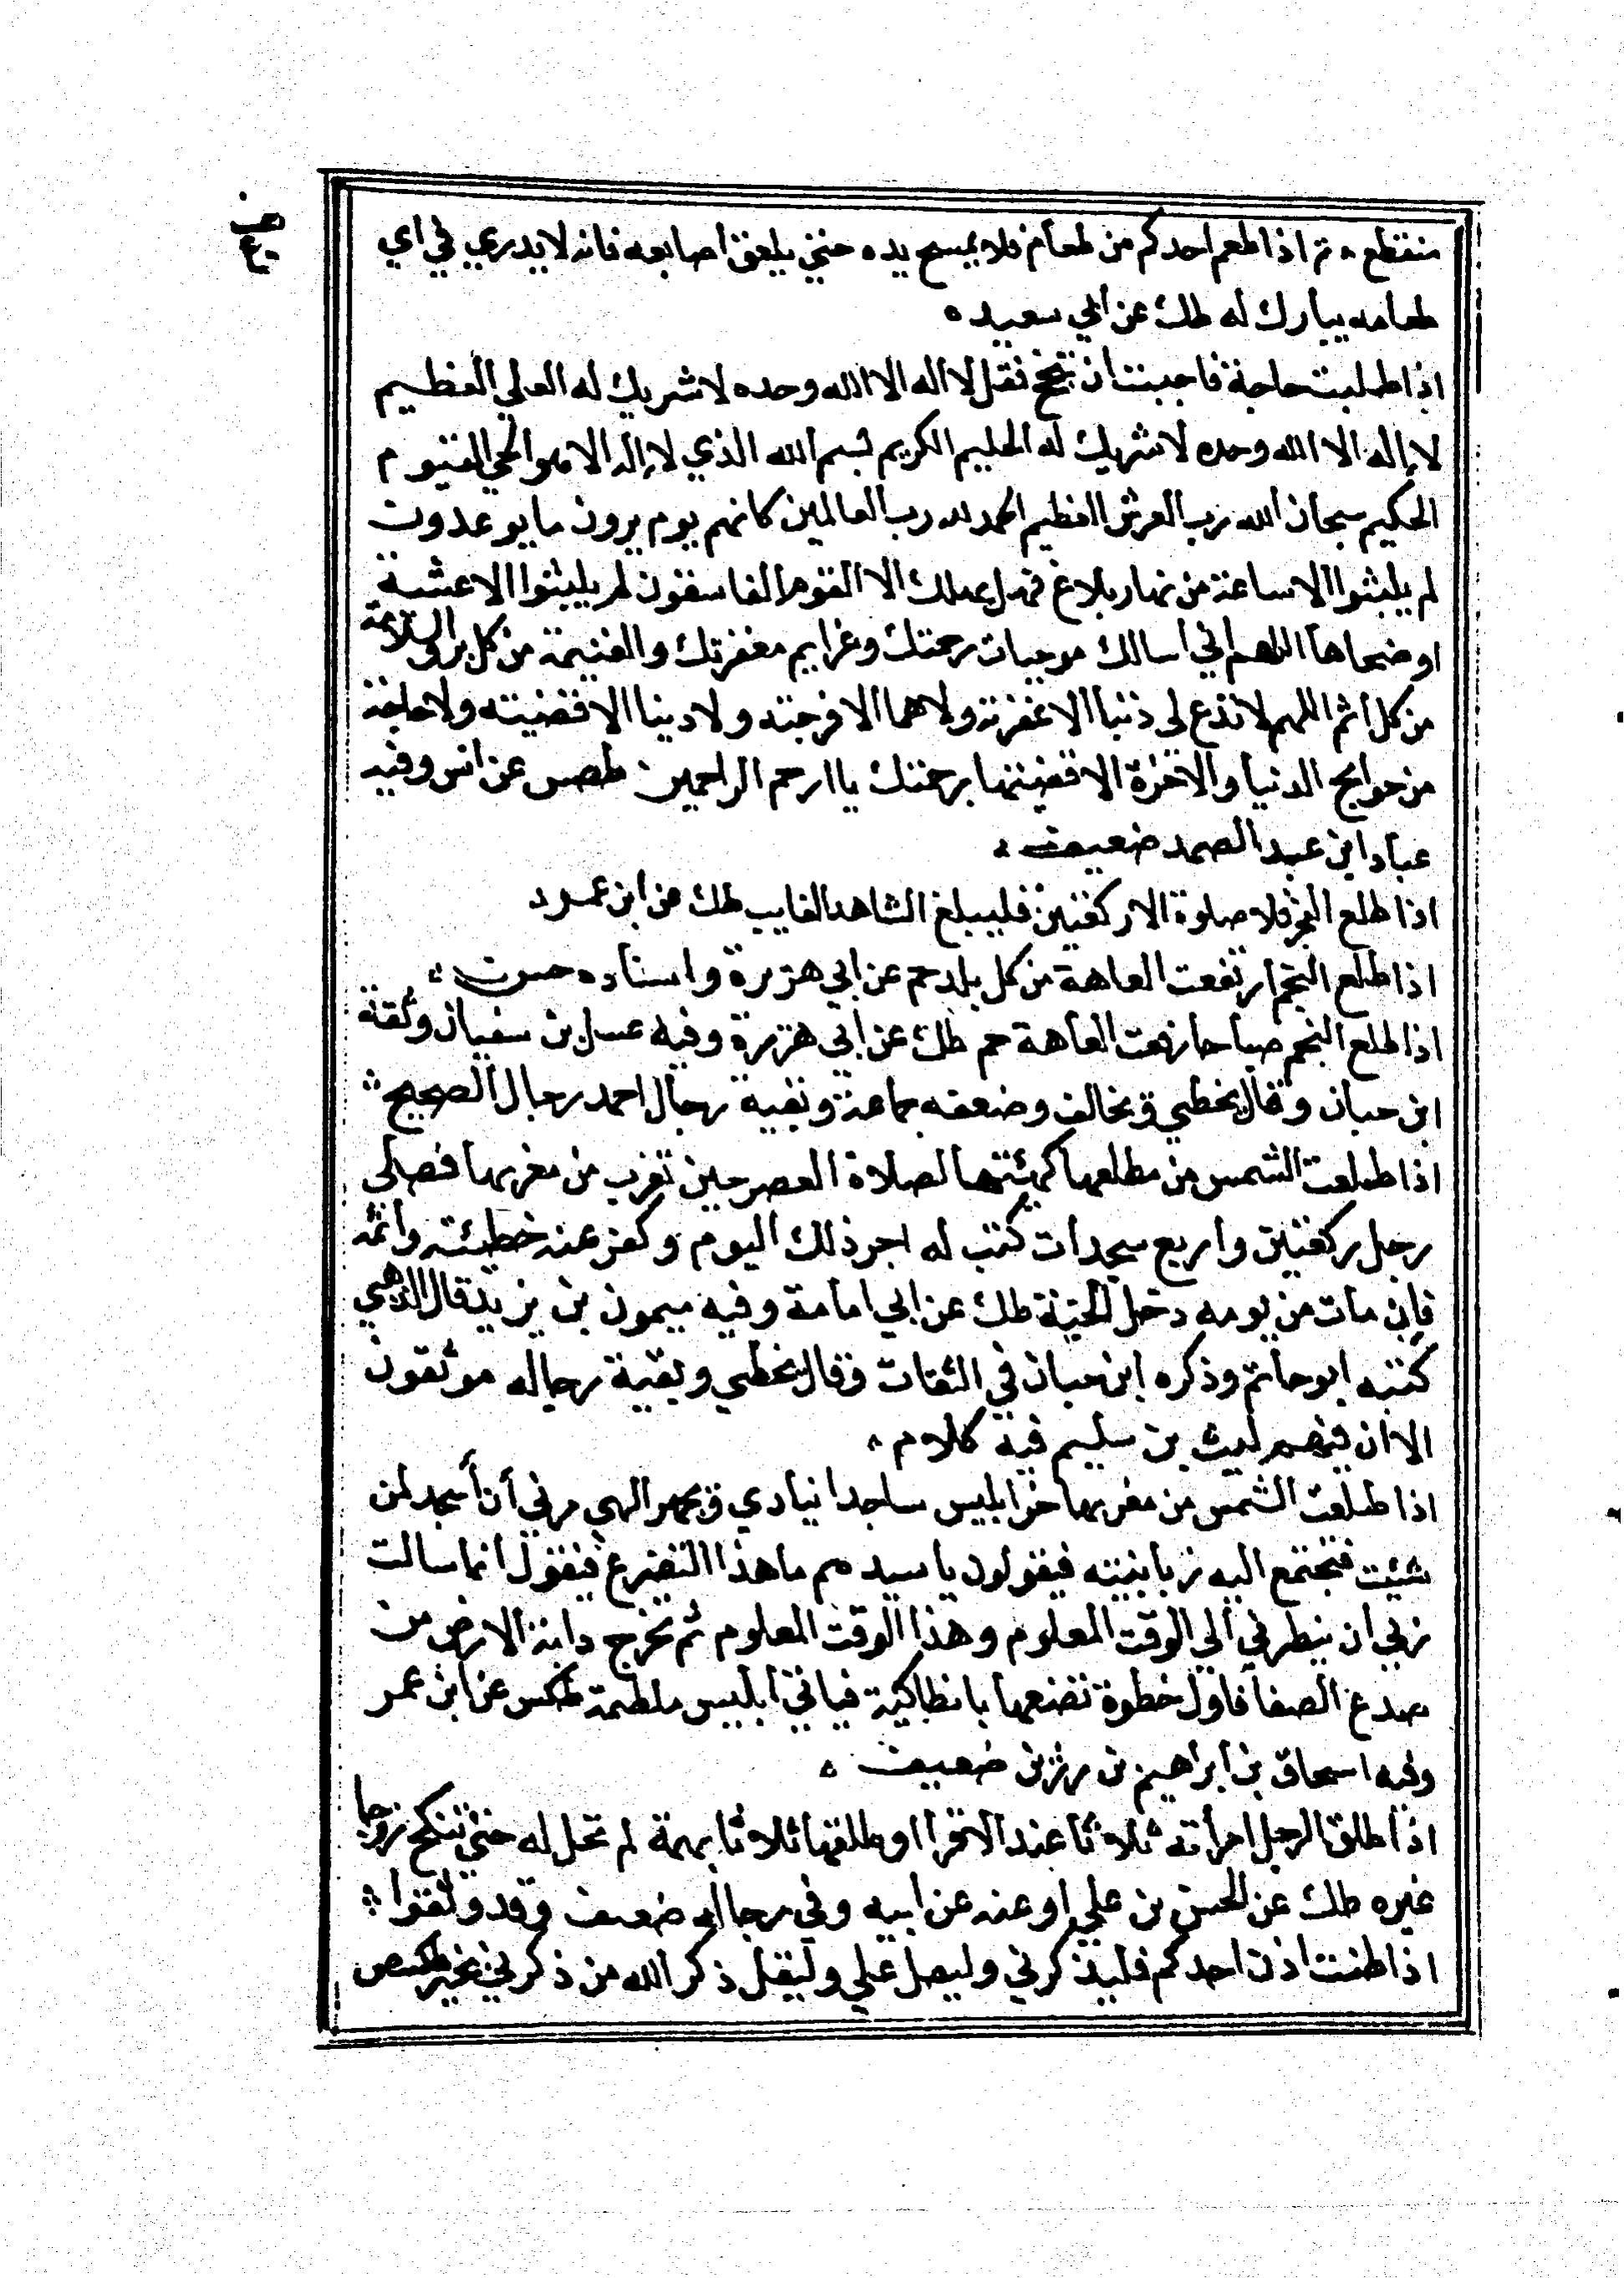 منقطع ه تم اذا طعم احدكم من طعام فلا يمسح يده حتي يلعق اصابعه فانه لا يدري في اي
طعامه يبارك له طك عن ابي سعيد ه
اذا طلبت حاجة فاحببت ان تنجح فقل لا اله الا الله وحده لا شريك له العلي العظيم
لا إله الا الله وحده لا شريك له الحليم الكريم بسم الله الذي لا إله الا هو الحي القيوم
الحكيم سبحان الله رب العرش العظيم الحمد لله رب العالمين كانهم يوم يرون ما يوعدون
لم يلبثوا الا ساعة من نهار بلاغ فهل يهلك الا القوم الفاسقون لم يلبثوا الا عشية
او ضحاها اللهم اني اسالك موجبات رحمتك وعزايم مغفرتك والغنيمة من كل بر والسلامة
من كل اثم اللهم لا تدع لي ذنبا الا غفرته ولا هما الا فرجته ولا دينا الا قضيته ولا حاجة
من حوايج الدنيا والآخرة الا قضيتها برحمتك يا ارحم الراحمين طصس عن انس وفيه
عباد ابن عبد الصمد ضعيف ه
اذا طلع الفجر فلا صلوة الا ركعتين فليبلغ الشاهد الغايب طك عن ابن عمرو
اذا طلع النجم ارتفعت العاهة من كل بلد حم عن ابي هريرة واسناده حسن ه
اذا طلع النجم صباحا رفعت العاهة حم طك عن ابي هريرة وفيه عسل بن سفيان وثقه
ابن حبان وقال يخطي ويخالف وضعفه جماعة وبقية رجال احمد رجال الصحيح ه
اذا طلعت الشمس من مطلعها كهيئتها لصلاة العصر حين تغرب من مغربها فصلي
رجل ركعتين واربع سجدات كتب له اجر ذلك اليوم وكفر عنه خطيئته واثمه
فإن مات من يومه دخل الجنة طك عن ابي امامة وفيه ميمون بن يزيد قال الذهبي
كتبه ابو حاتم وذكره ابن حبان في الثقات وقال يخطي وبقية رجاله موثقون
الا ان فيهم ليث بن سليم فيه كلام ه
اذا طلعت الشمس من مغربها خر ابليس ساجدا ينادي ويجهر الهي مرني أن أسجد لمن
شئت فتجتمع اليه زبانيته فيقولون يا سيدهم ما هذا التضرع فيقول انما سالت
ربي ان ينظرني الى الوقت المعلوم وهذا الوقت المعلوم ثم تخرج دابة الارض من
صدع الصفا فاول خطوة تضعها بانطاكية فياتي ابليس ملطمة طكس عن ابن عمر
وفيه اسحاق بن ابراهيم بن ضعيف ه
اذا طلق الرجل امرأته ثلاثا عند الاقرا او طلقها ثلاثا بهمة لم تحل له حتي تنكح زوجا
غيره طك عن الحسن بن علي او عنه عن ابيه وفي رجاله ضعف وقد وثقوا ه
اذا طنت اذن احدكم فليذكرني وليصل علي وليقل ذكر الله من ذكرني بخير طكص